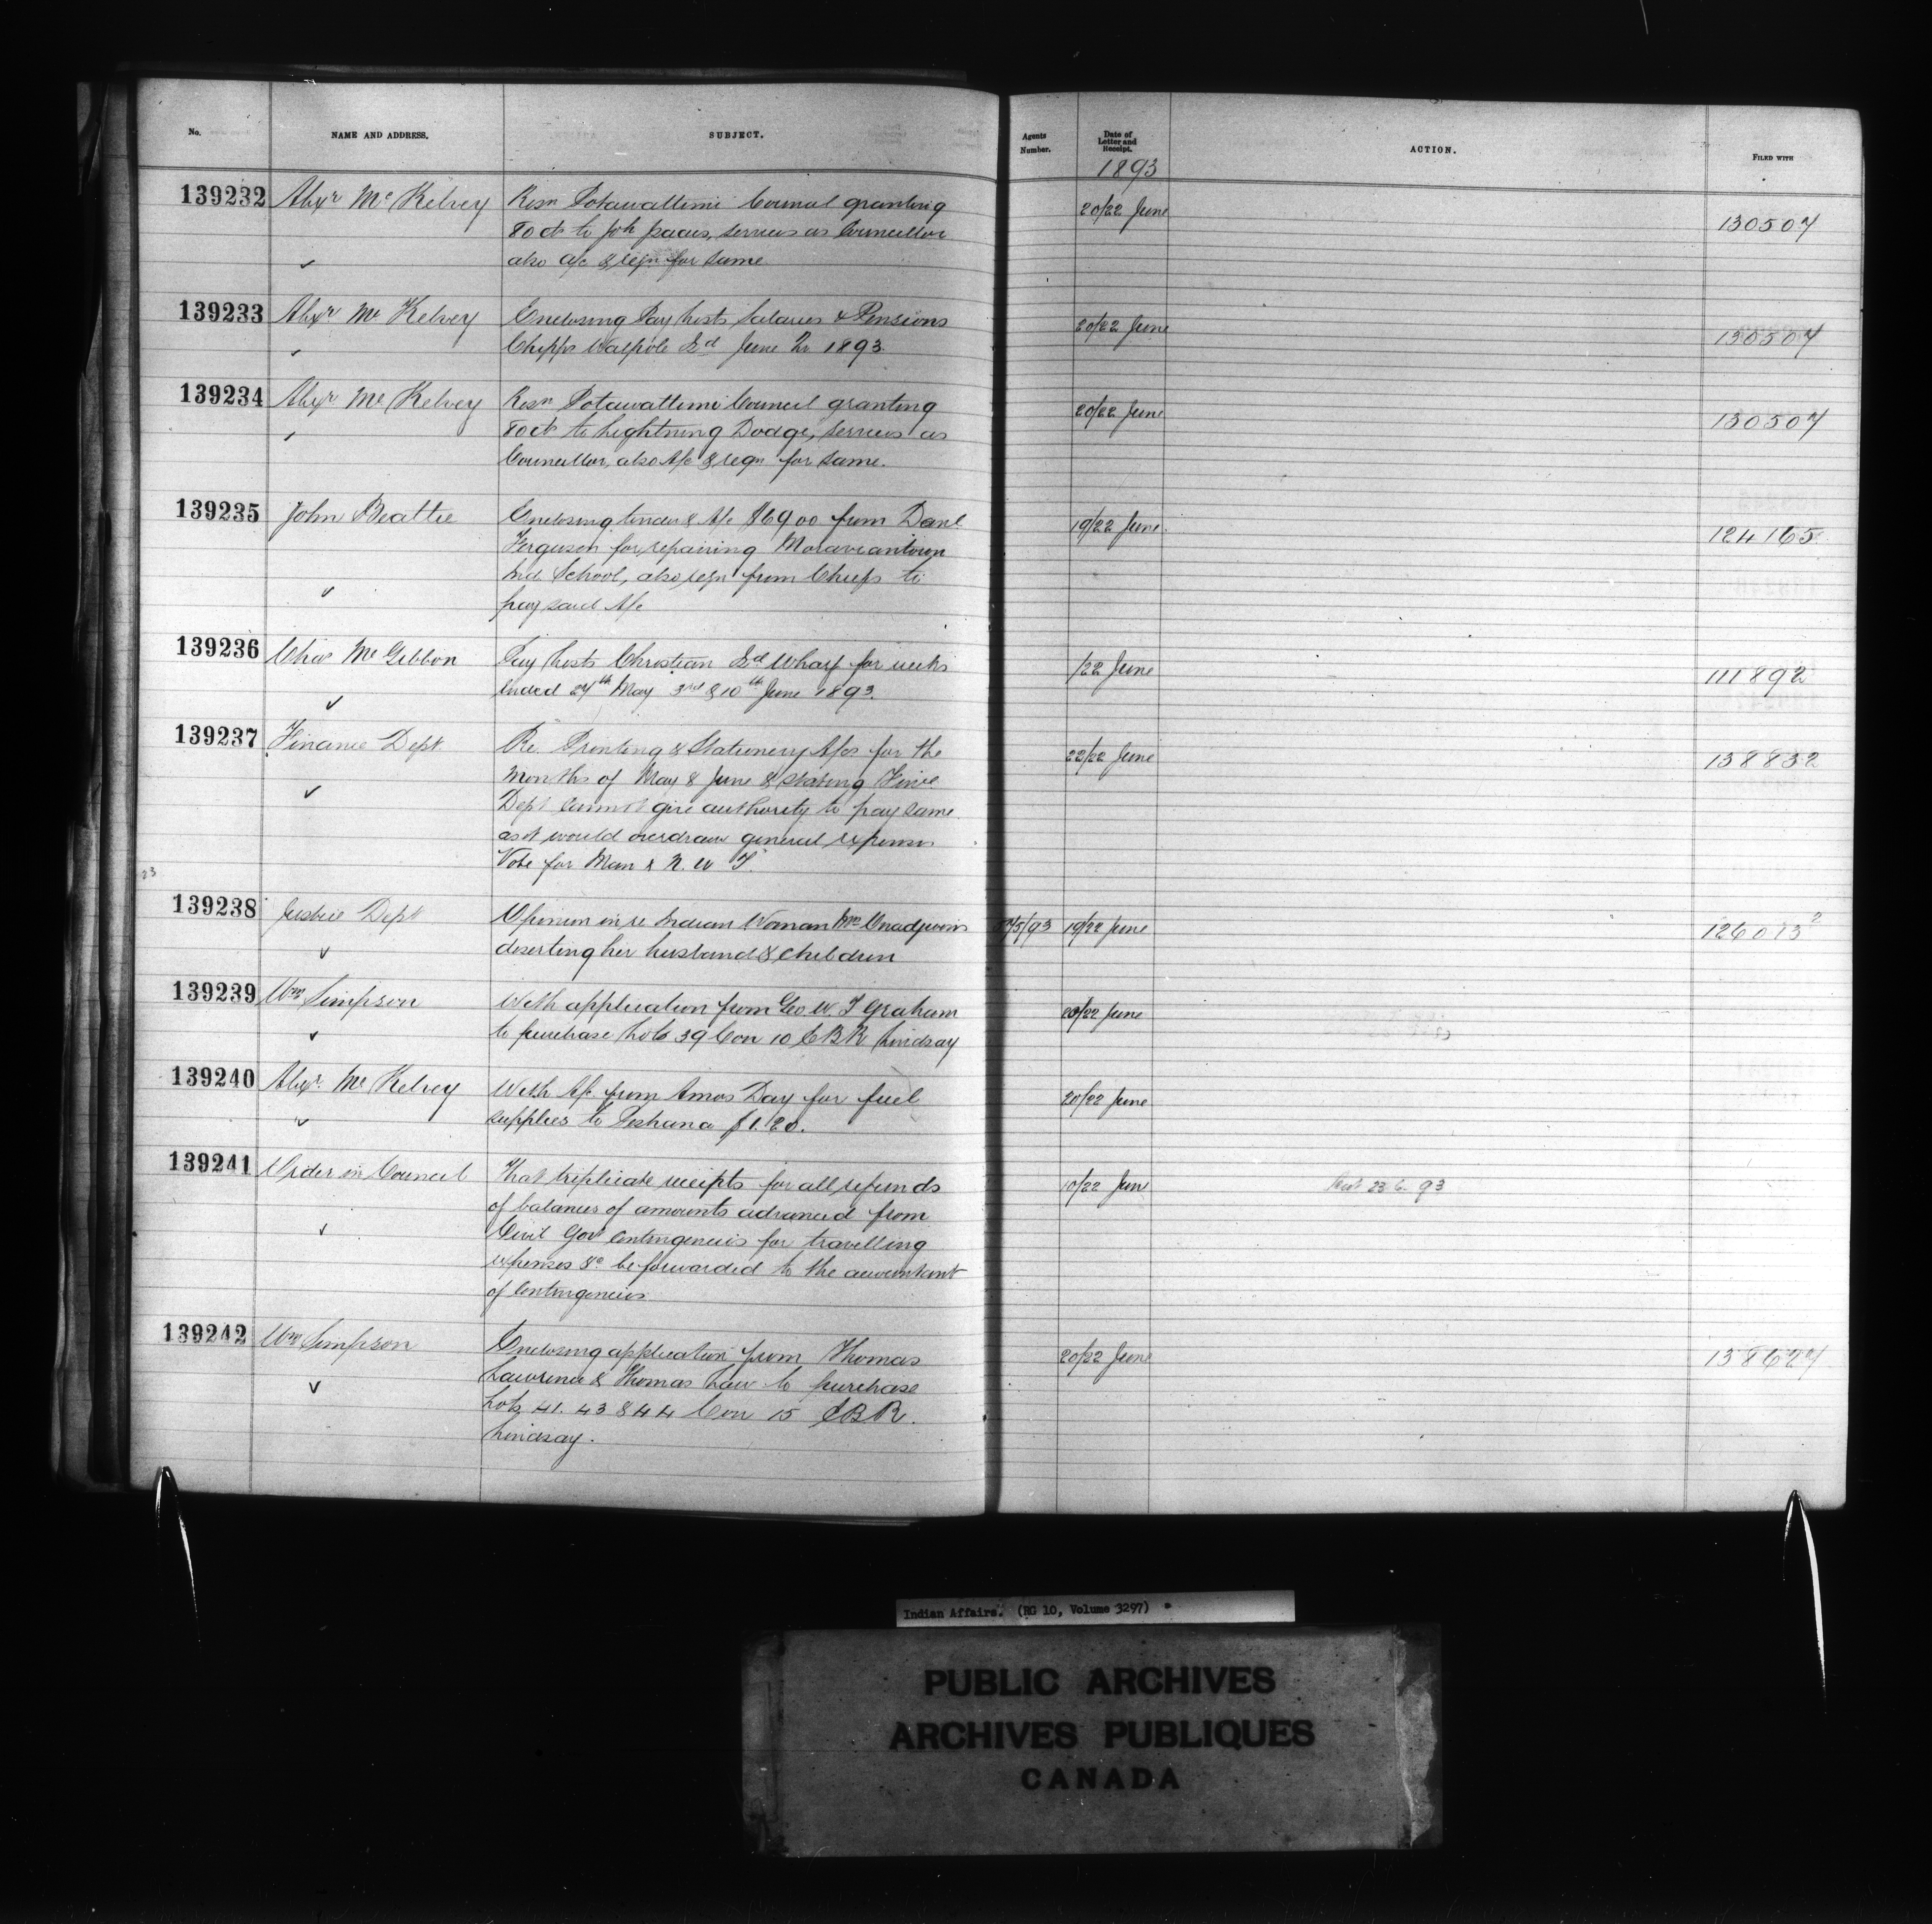 No. NAME AND ADDRESS. SUBJECT. Agents Number. Date of Letter and Receipt. ACTION. FILED WITH
1893
139232 Alexr McKelvey Resn Potawattimi Council granting 20/22 June 130507
80 cts to Joh Isaacs, services as Councillor
also a/c & reqn for same
139233 Alexr McKelvey Enclosing Pay Lists Salaries & Pensions 20/22 June 130507
Chipps Walpole Isd June Qr 1893.
139234 Alexr McKelvey Resn Potawattimi Council granting 20/22 June 130507
80 cts to Lightning Dodge, services as
Councillor, also A/c & reqn for same.
139235 John Beattie Enclosing tender & A/c $69 00 from Danl 19/22 June 124165
Ferguson for repairing Moraviantown
Ind School, also reqn from Chiefs to
pay said A/c
139236 Chas McGibbon Pay Lists Christian Isd Wharf for weeks /22 June 111892
ended 27th May 3rd & 10th June 1893.
139237 Finance Dept Re Printing & Stationery A/cs for the 22/22 June 138832
Months of May & June & stating Fince
Dept cannot give authority to pay same
as it would overdraw general expenses
Vote for Man & N. W T.
23
139238 Justice Dept Opinion in re Indian Woman Mrs 19/22 June 126073²
deserting her husband & children
139239 Wm Simpson With application from Geo. W. T Graham 20/22 June
to purchase Lot 39 Con 10 EBR Lindsay
139240 Alexr McKelvey With A/c from Amos Day for fuel 20/22 June
supplies to Peshana $1.20.
139241 Order in Council That triplicate receipts for all refunds 10/22 June 23.6.93
of balances of amounts advanced from
Civil Govt Contingencies for travelling
expenses &c be forwarded to the accountant
of Contingencies
139242 Wm Simpson Enclosing application from Thomas 20/22 June 138627
Lawrence & Thomas Law to purchase
Lots 41. 43 & 44 Con 15 EBR.
Lindsay.
Indian Affairs. (RG 10, Volume 3297)
PUBLIC ARCHIVES
ARCHIVES PUBLIQUES
CANADA